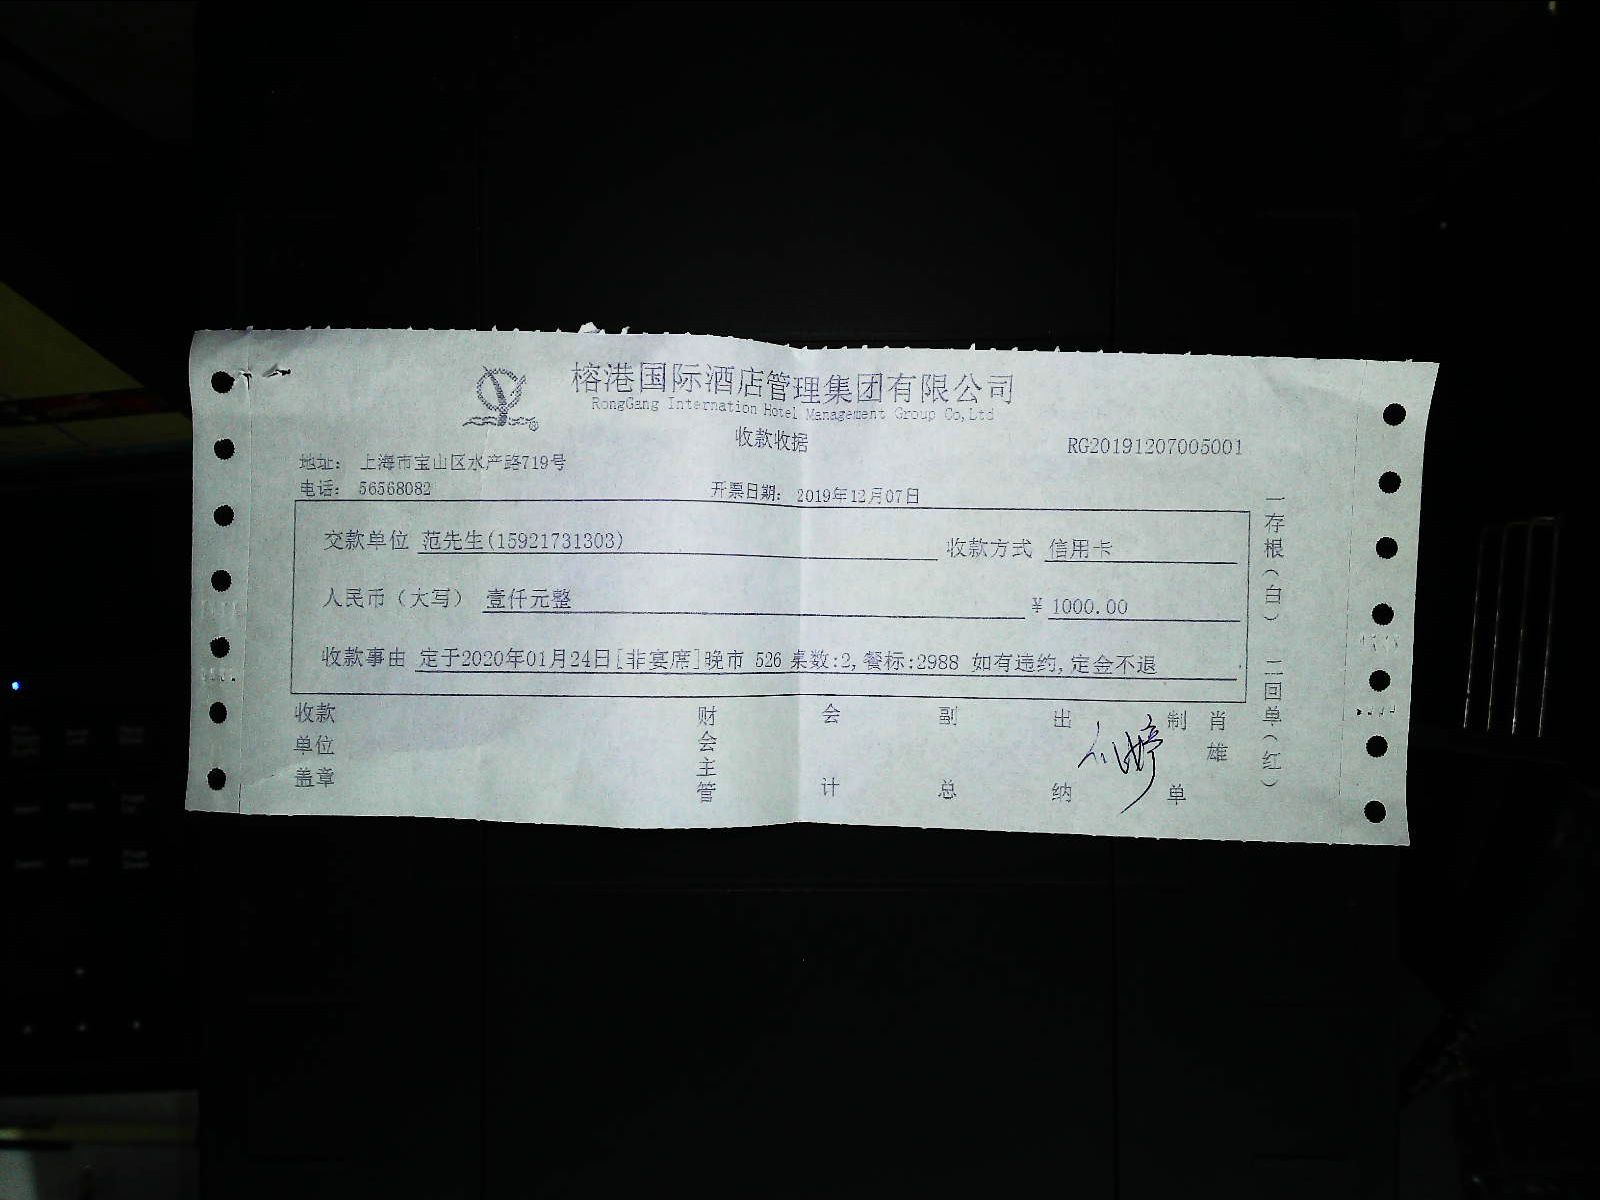 榕港国际酒店管理集团有限公司
RongGang Internation Hotel Management Group Co,Ltd
收款收据
RG20191207005001
地址： 上海市宝山区水产路719号
电话： 56568082
开票日期： 2019年12月07日
交款单位 范先生(15921731303)
收款方式 信用卡
人民币（大写） 壹仟元整
¥ 1000.00
收款事由 定于2020年01月24日[非宴席]晚市 526 桌数:2,餐标:2988 如有违约,定金不退
收款单位盖章
财会主管
会计
副总
出纳
制单
肖雄
一存根（白） 二回单（红）